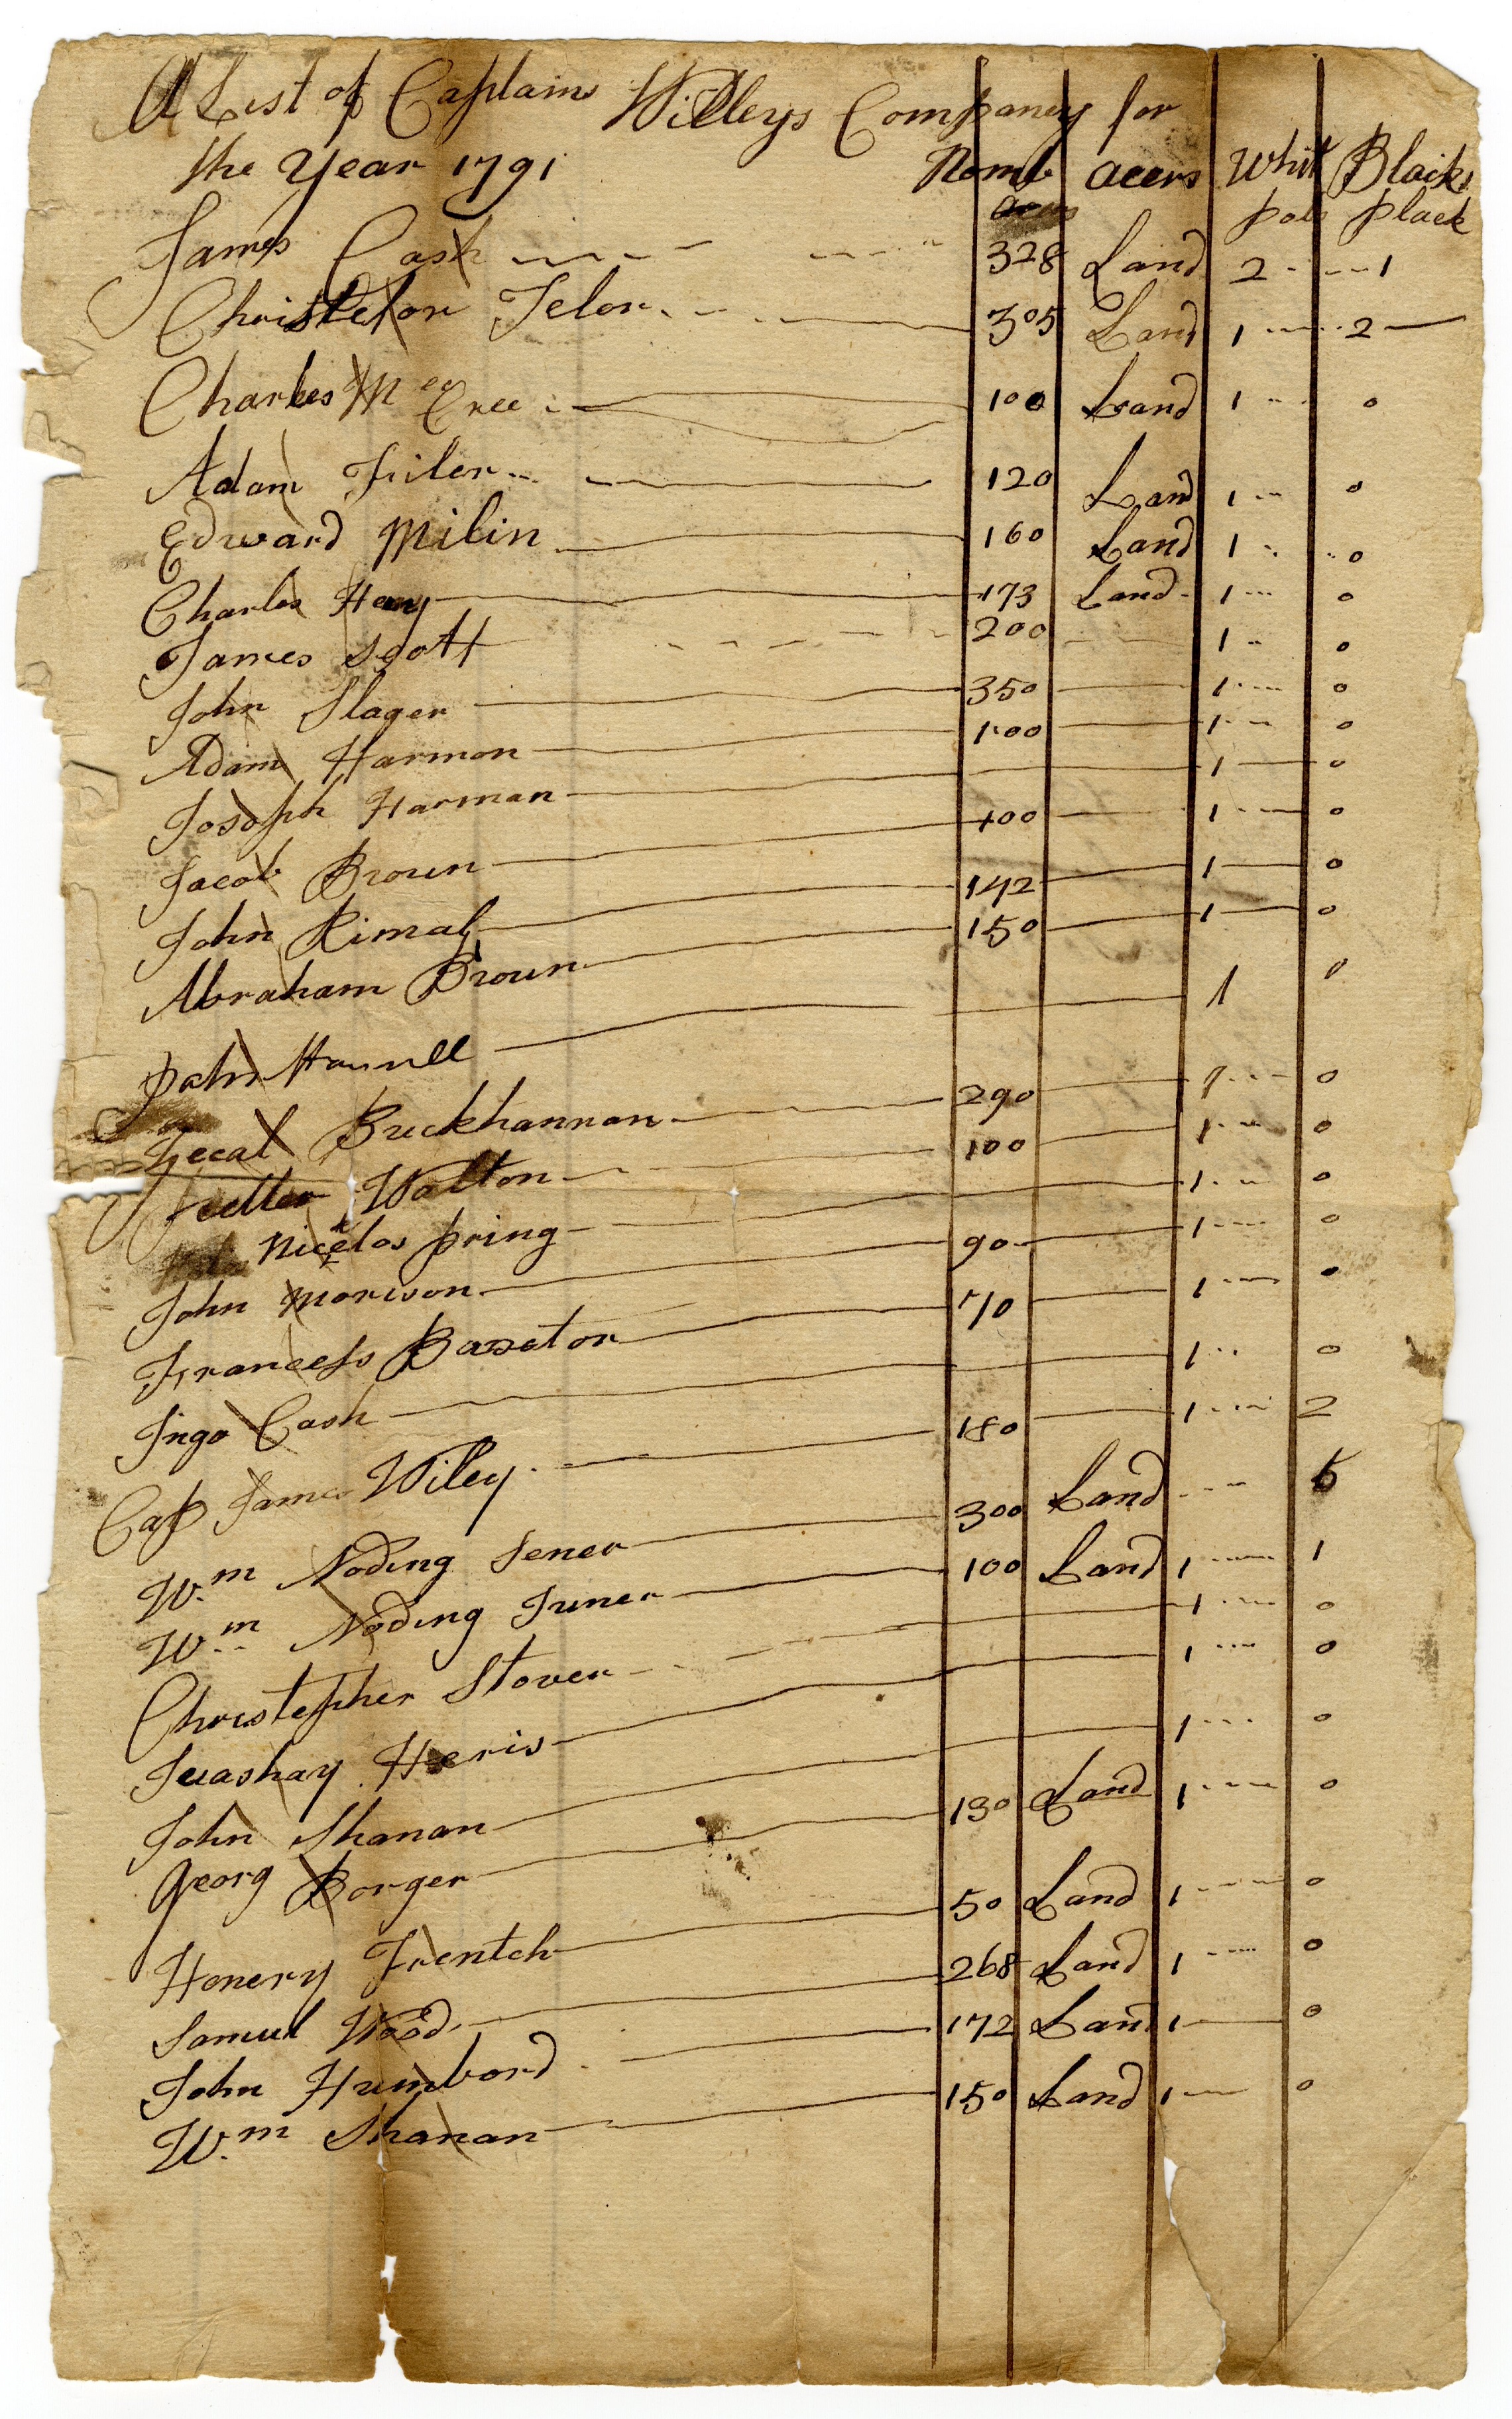 A List of Captains Willeys Company for
the Year 1791 Nomb acers Whit Blacks
pols black
James Cash 328 Land 2 1
Christefor Telor 305 Land 1 2
Charles Mc Cree 100 Land 1 0
Adam Filer 120 Land 1 0
Edward Milin 160 Land 1 0
Charles Hany 173 Land 1 0
James Scott 200 1 0
John Slager 350 1 0
Adam Harmon 100 1 0
Joseph Harman 1 0
Jacob Broun 100 1 0
John Rimal 142 1 0
Abraham Broun 150 1 0
John 1 0
Buckhannan 290 1 0
Walton 100 1 0
Nicelos pring 1 0
John Morison 90 1 0
Francess Baxetor 70 1 0
Ingo Cash 1 0
Cap James Wiley 180 1 2
Wm Noding Sener 300 Land 5
Wm Noding Juner 100 Land 1 1
Christepher Stover 1 0
Heris 1 0
John Shanan 1 0
Georg Borger 130 Land 1 0
Honery Frentch 50 Land 1 0
Samuel Wood 268 Land 1 0
John Humbard 172 Land 1 0
Wm Shanan 150 Land 1 0